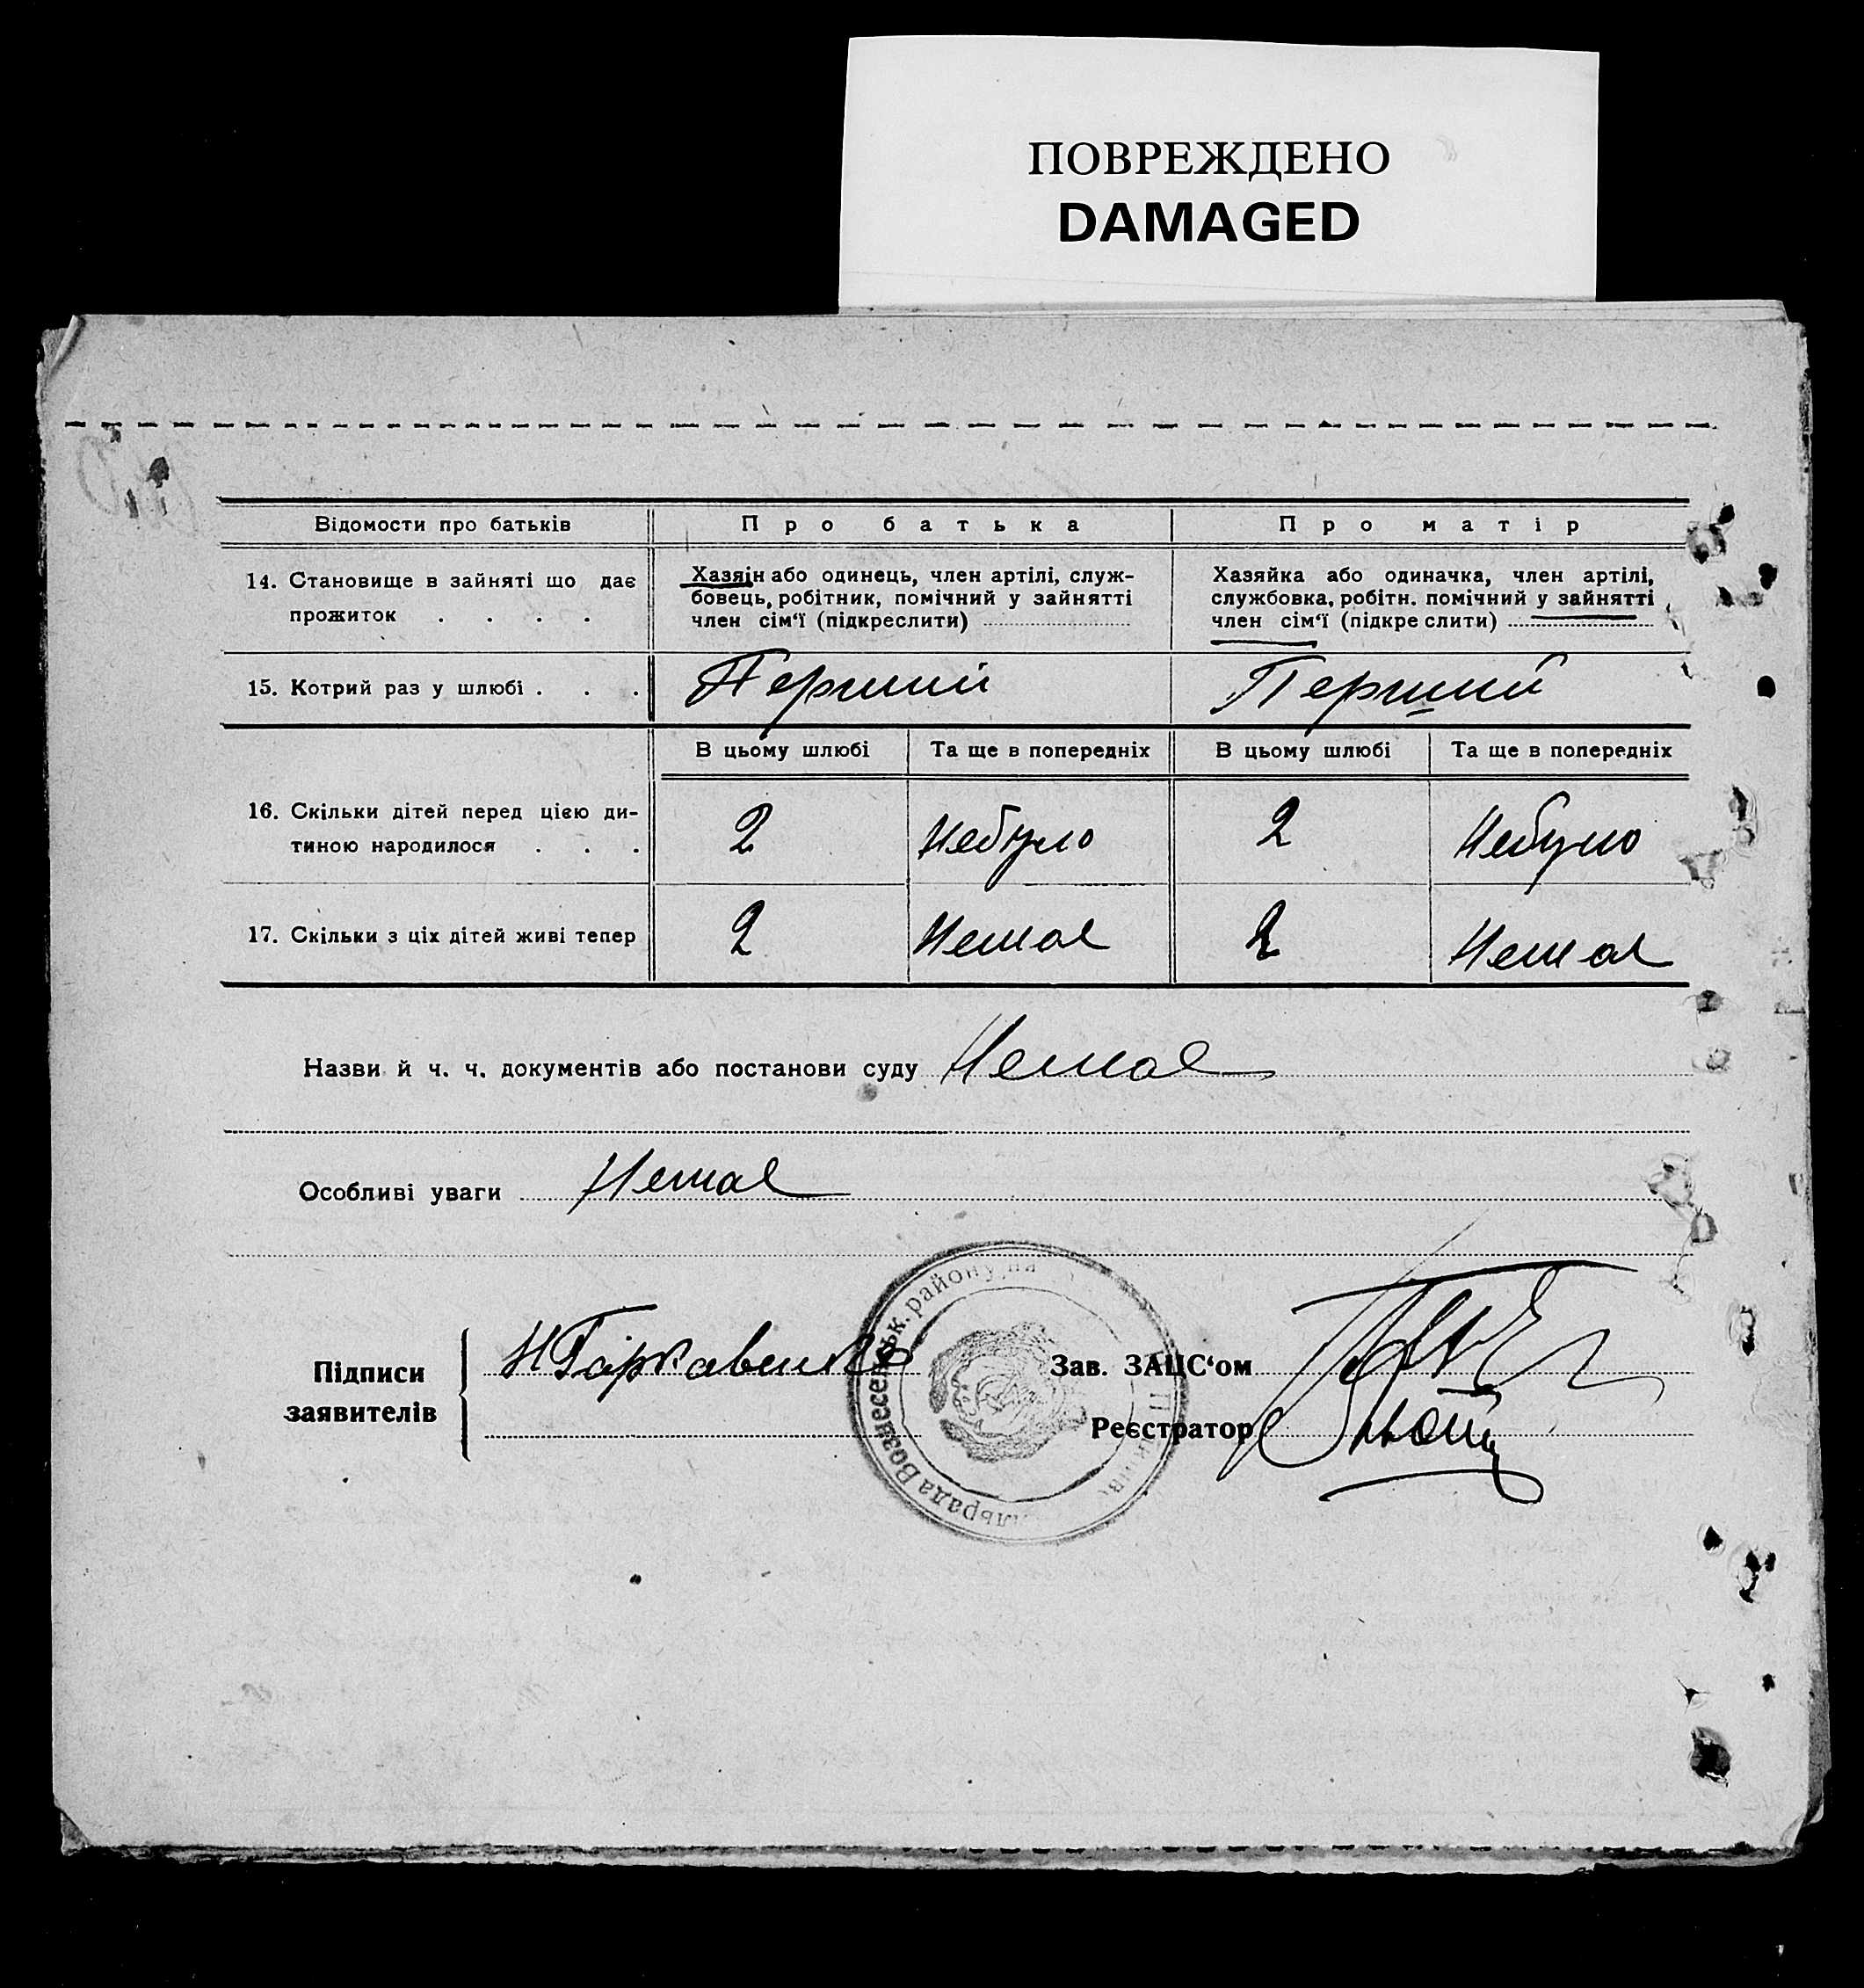 ПОВРЕЖДЕНО
DAMAGED
Відомости про батьків
Про батька
Про матір
14. Становище в зайняті що дає
прожиток . . . .
Хазяїн або одинець, член артілі, служ-
бовець, робітник, помічний у зайнятті
член сім'ї (підкреслити)
Хазяйка або одиначка, член артілі,
службовка, робітн. помічний у зайнятті
член сім'ї (підкреслити)
15. Котрий раз у шлюбі . . .
Перший
Перший
В цьому шлюбі
Та ще в попередніх
В цьому шлюбі
Та ще в попередніх
16. Скільки дітей перед цією ди-
тиною народилося . . .
2
Небуло
2
Небуло
17. Скільки з ціх дітей живі тепер
2
Немає
2
Немає
Назви й ч. ч. документів або постанови суду Немає
Особливі уваги Немає
Підписи
заявителів
Н Гаркавенко
Зав. ЗАЦС'ом
Реєстратор
району на